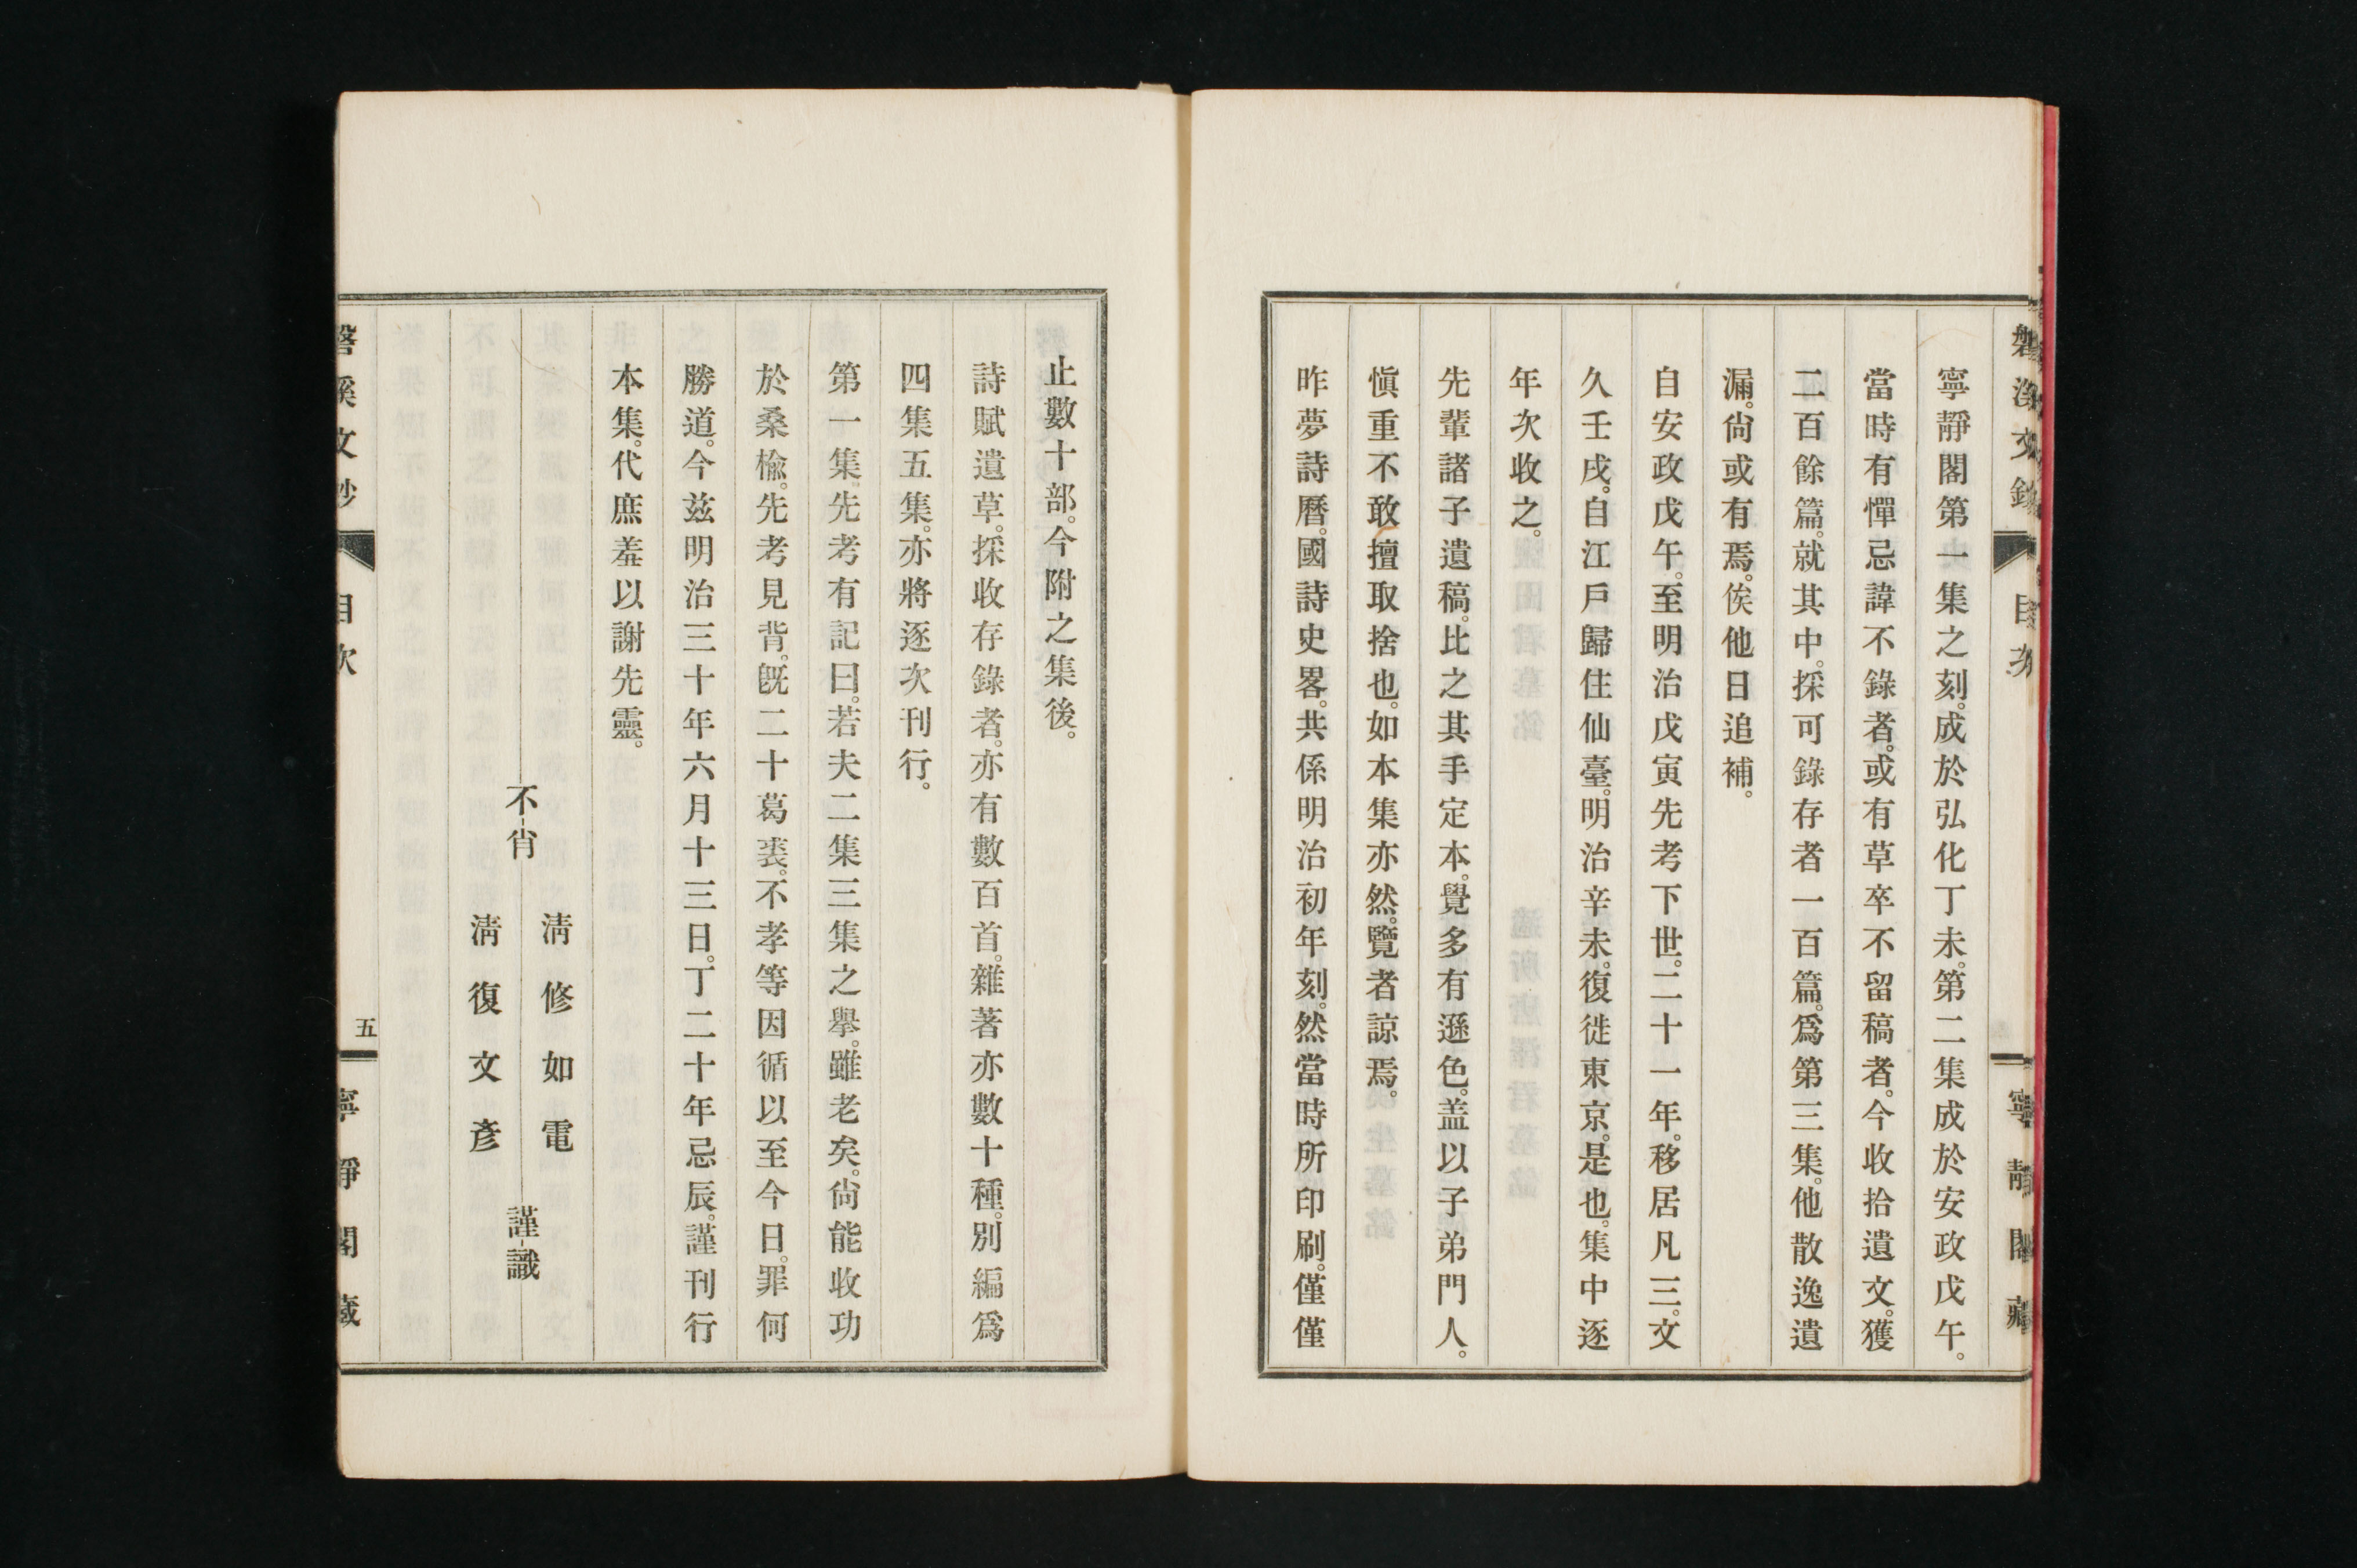 磐溪文鈔
目次
寧靜閣藏
寧靜閣第一集之刻。成於弘化丁未。第二集成於安政戊午。
當時有憚忌諱不錄者。或有草卒不留稿者。今收拾遺文。獲
二百餘篇。就其中。採可錄存者一百篇。爲第三集。他散逸遺
漏。尙或有焉。俟他日追補。
自安政戊午。至明治戊寅先考下世。二十一年。移居凡三。文
久壬戌。自江戶歸住仙臺。明治辛未。復徙東京。是也。集中逐
年次收之。
先輩諸子遺稿。比之其手定本。覺多有遜色。盖以子弟門人。
愼重不敢擅取捨也。如本集亦然。覽者諒焉。
昨夢詩曆。國詩史畧。共係明治初年刻。然當時所印刷。僅僅
止數十部。今附之集後。
詩賦遺草。採收存錄者。亦有數百首。雜著亦數十種。別編爲
四集五集。亦將逐次刊行。
第一集。先考有記曰。若夫二集三集之擧。雖老矣。尙能收功
於桑楡。先考見背。旣二十葛裘。不孝等因循以至今日。罪何
勝道。今玆明治三十年六月十三日。丁二十年忌辰。謹刊行
本集。代庶羞以謝先靈。
不-肖
淸修如電
淸復文彥
謹-識
磐溪文鈔
目次
五
寧靜閣藏